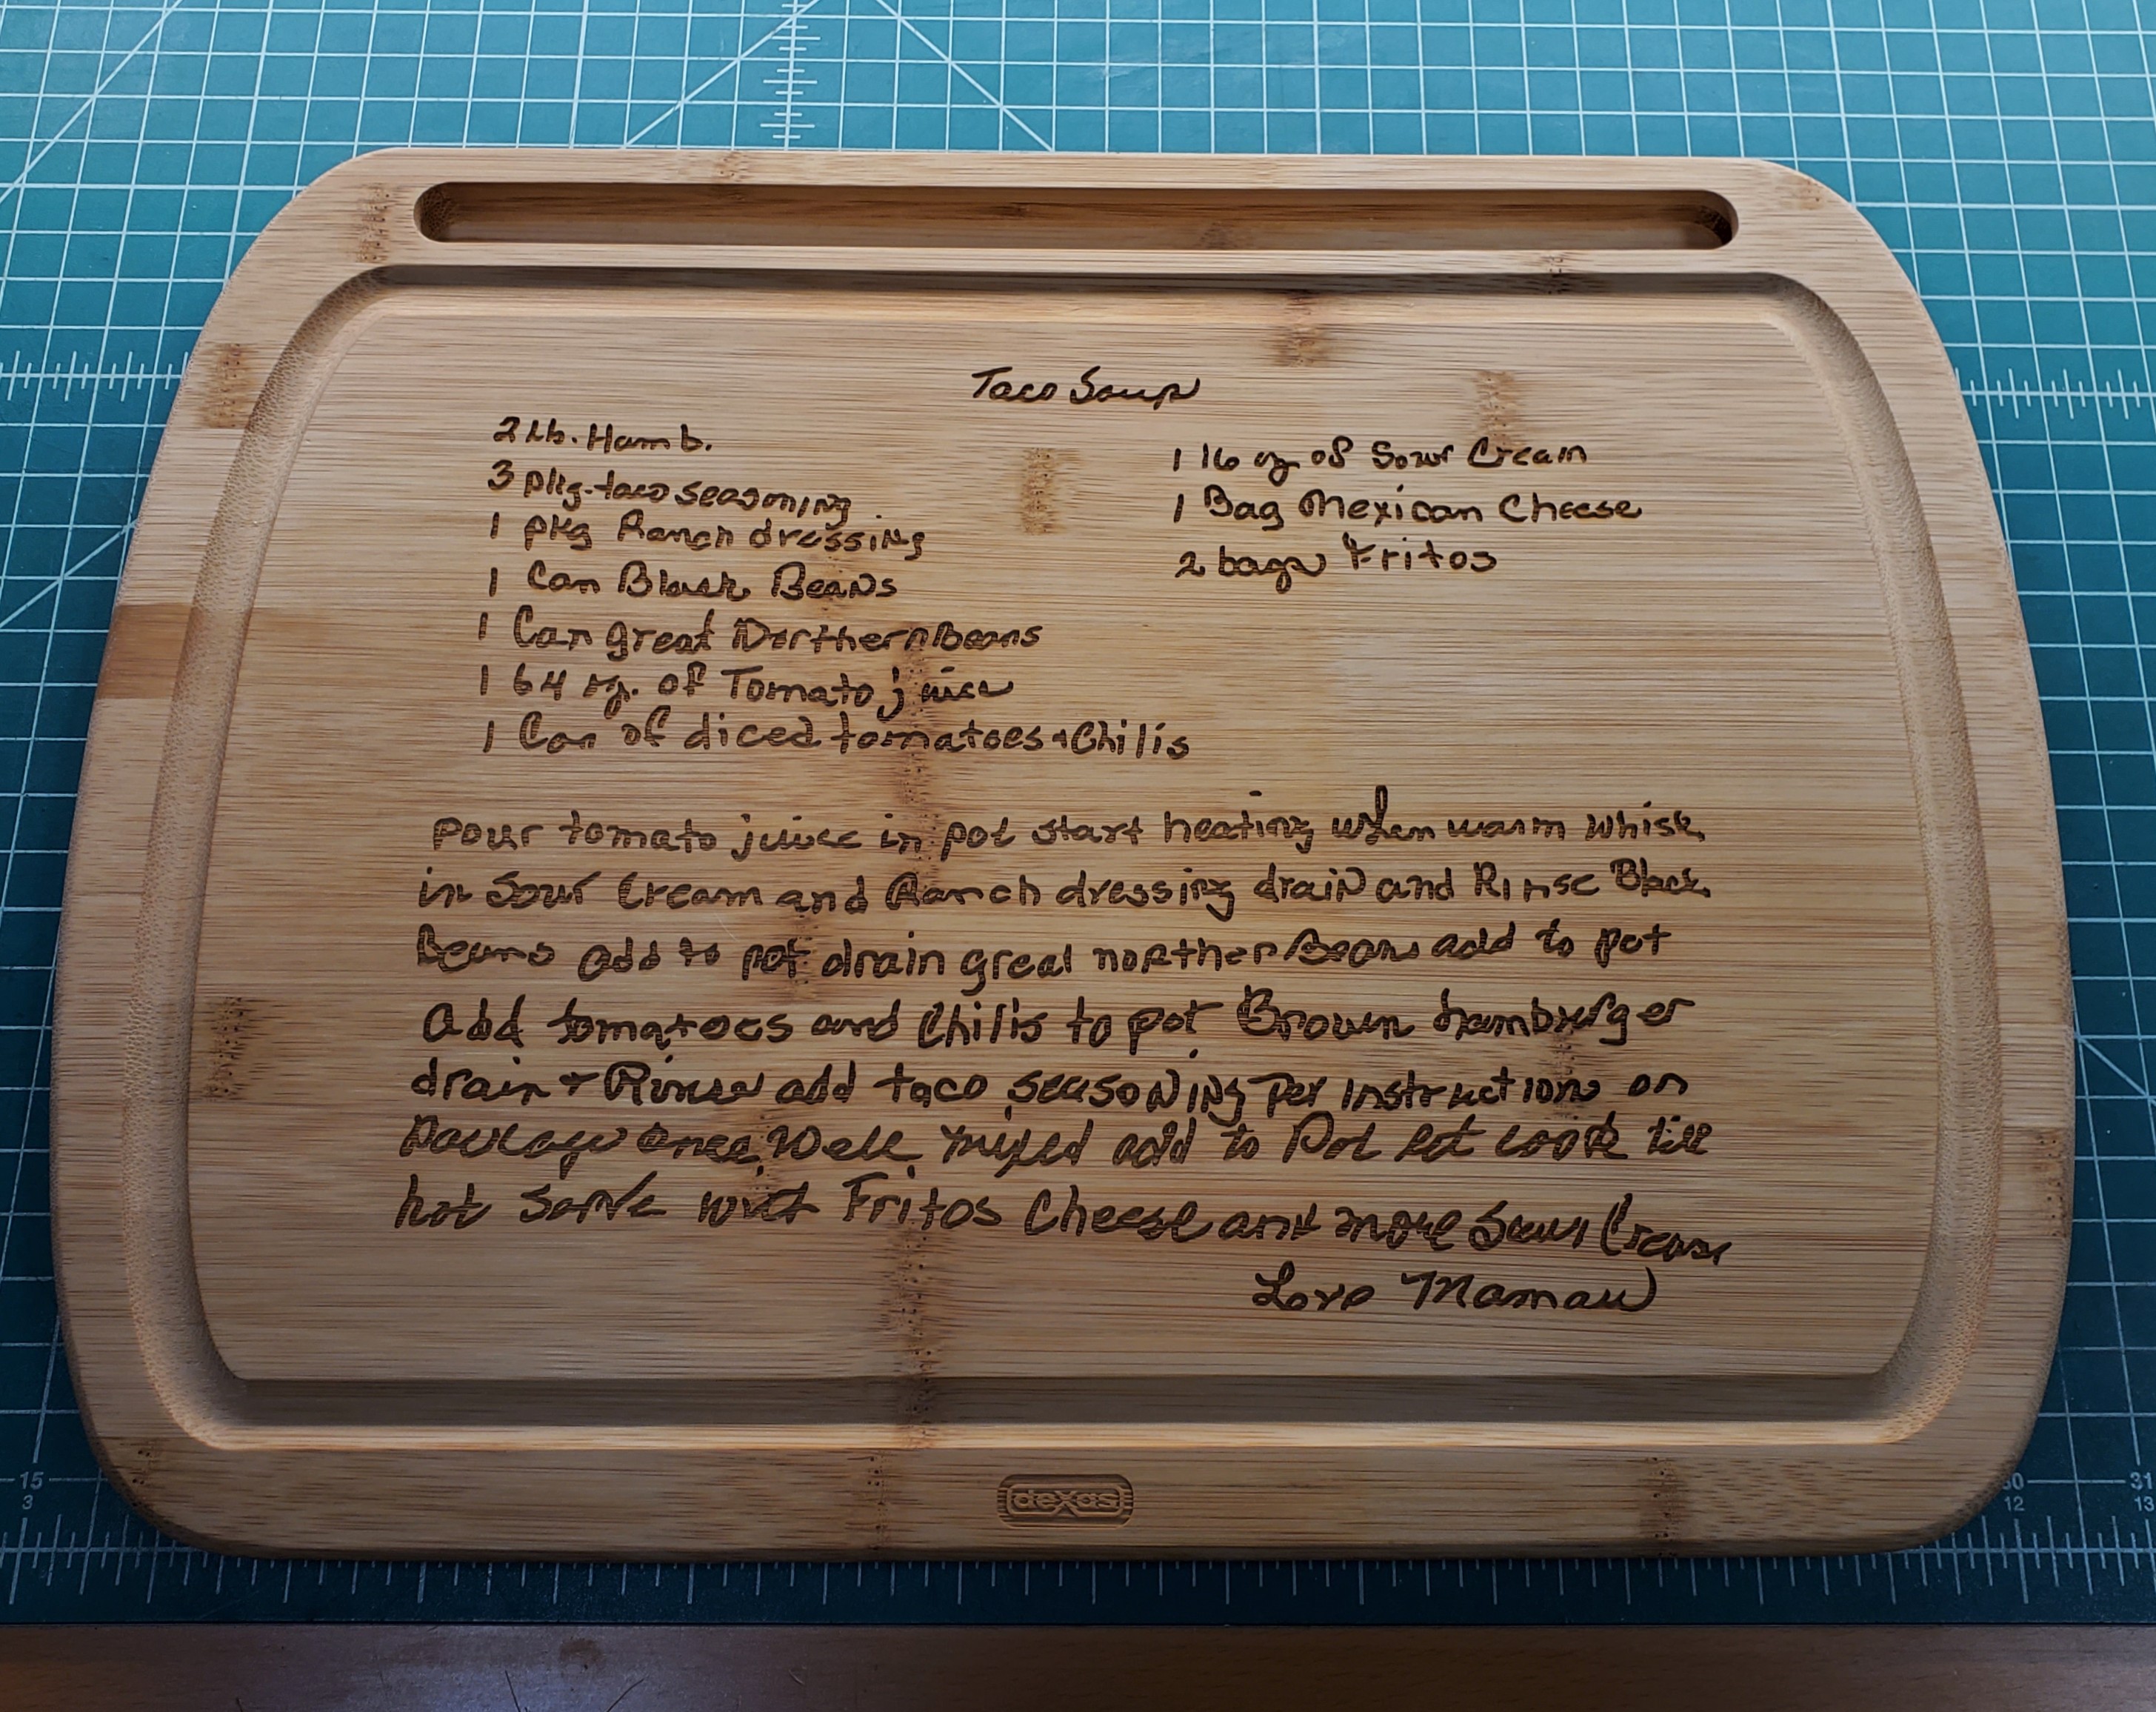 Taco Soup
2 Lb. Hamb.
3 pkg. taco seasoning
1 pkg Ranch dressing
1 Can Black Beans
1 Can great Northern Beans
1 64 oz. of Tomato juice
1 Can of diced tomatoes + Chilis
1 16 oz of Sour Cream
1 Bag Mexican Cheese
2 bags Fritos
pour tomato juice in pot start heating when warm whisk
in Sour Cream and Ranch dressing drain and Rinse Black
Beans add to pot drain great northern Beans add to pot
Add tomatoes and Chilis to pot Brown hamburger
drain + Rinse add taco seasoning per instructions on
Package once Well mixed add to Pot let cook till
hot Serve with Fritos Cheese and more Sour Cream
Love Mamaw
dexas
15
3
30
12
31
13